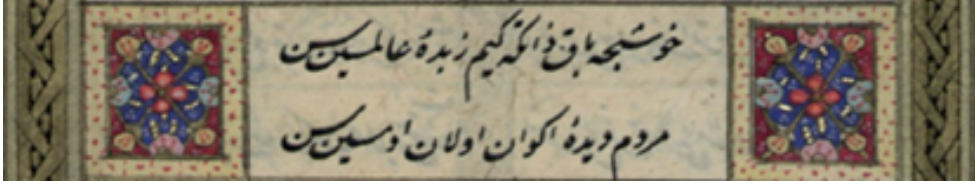 خوشجه باق ذاتکه کیم زبدهٔ عالمسین سن
مردم دیدهٔ اکوان اولان ادمسین سن